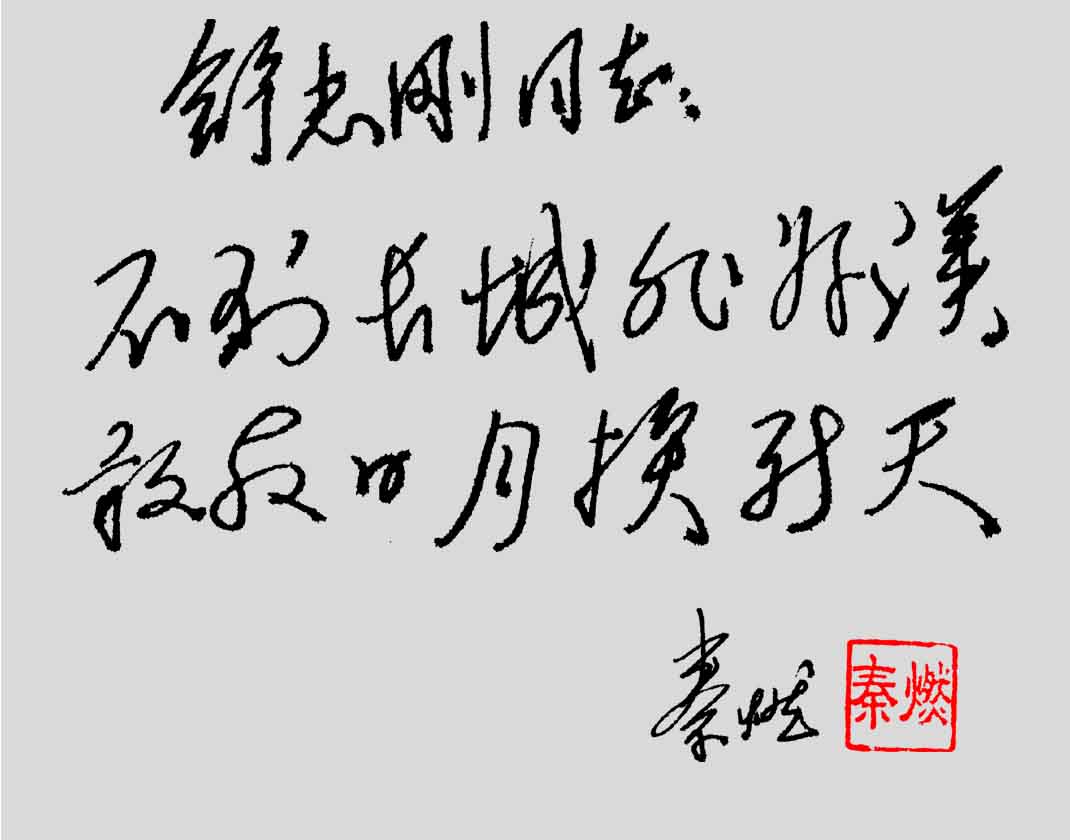 舒志刚同志：
不到长城非好汉
敢教日月换新天
秦燃
秦燃